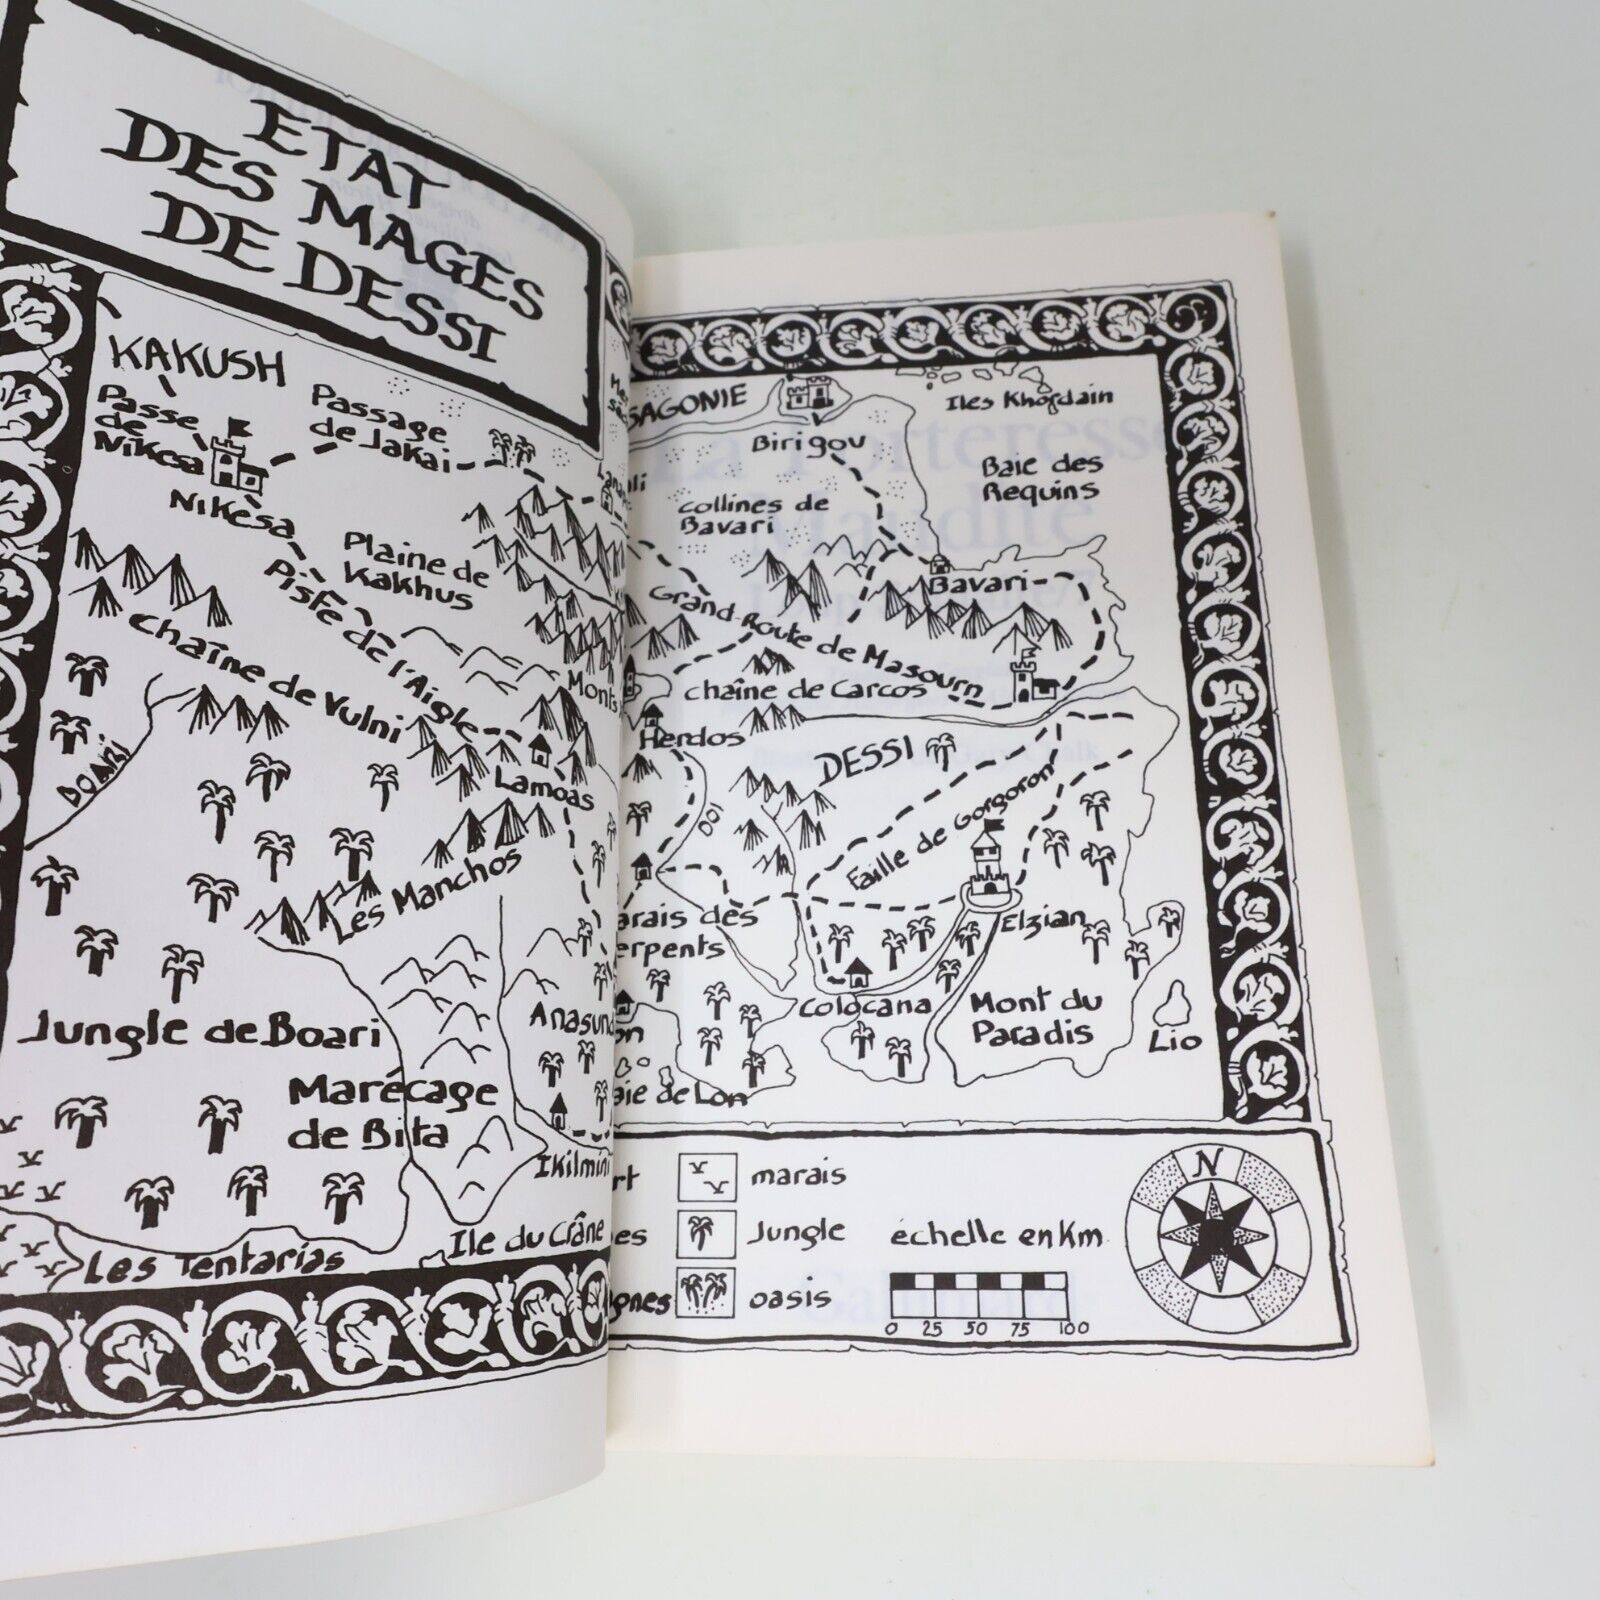 ETAT
DES MAGES
DE DESSI
KAKUSH
Passe
de
Nikesa
Passage
de Jakai
Nikesa
Plaine de
Kakhus
Piste de l'Aigle
Chaîne de Vulni
Monts
Doani
Lamoas
Les Manchos
Jungle de Boari
Anasund
Marécage
de Bita
Ikilmini
Ile du Crâne
Les Tentarias
SAGONIE
Birigou
Iles Khordain
Baie des
Requins
collines de
Bavari
Bavari
Grand-Route de Masourn
chaîne de Carcos
Herdos
DESSI
DOI
Faille de Gorgoron
arais des
erpents
Elzian
Colocana
Mont du
Paradis
Lio
on
aie de Lon
rt
marais
es
Jungle
gnes
oasis
échelle en Km
0 25 50 75 100
N
La Forteresse
Maudite